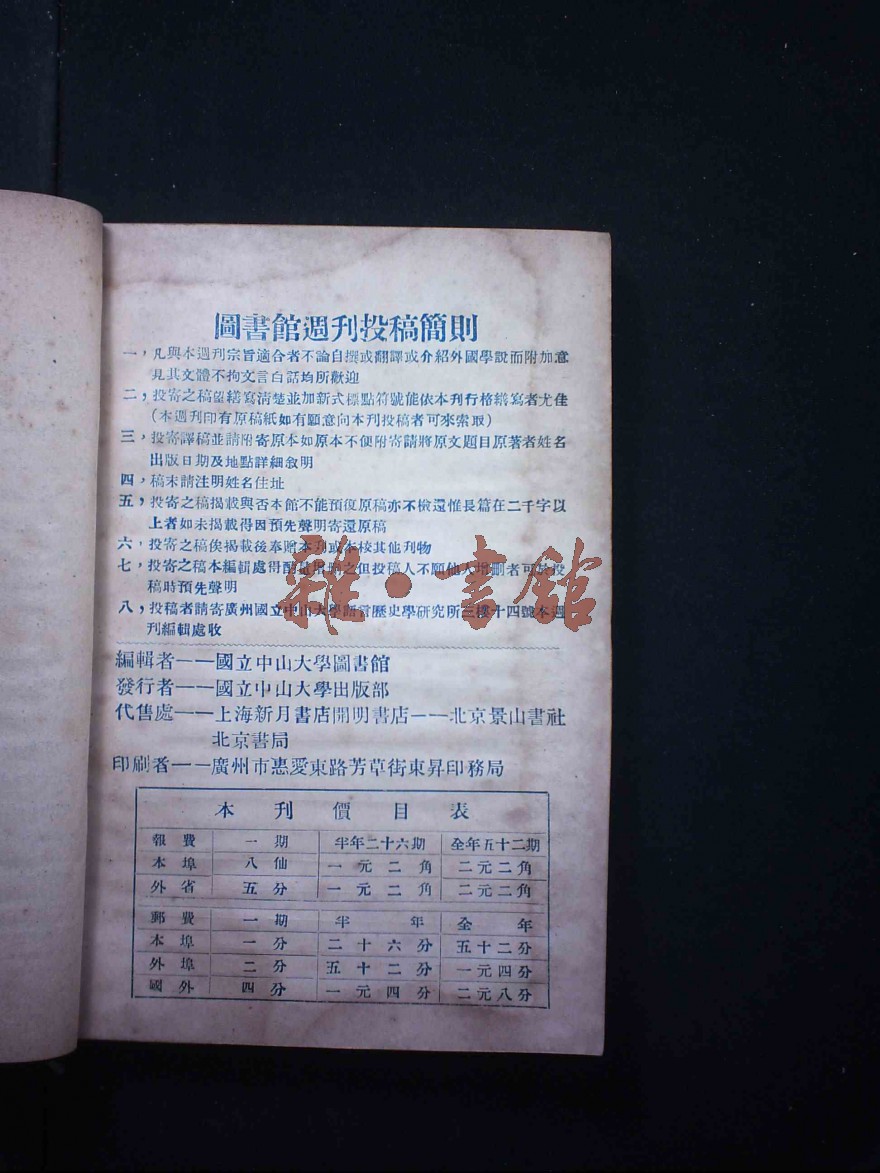 圖書館週刊投稿簡則
一，凡與本週刊宗旨適合者不論自撰或翻譯或介紹外國學說而附加意
見其文體不拘文言白話均所歡迎
二，投寄之稿望繕寫清楚並加新式標點符號能依本刊行格繕寫者尤佳
（本週刊印有原稿紙如有願意向本刊投稿者可來索取）
三，投寄譯稿並請附寄原本如原本不便附寄請將原文題目原著者姓名
出版日期及地點詳細敘明
四，稿末請注明姓名住址
五，投寄之稿揭載與否本館不能預復原稿亦不檢還惟長篇在二千字以
上者如未揭載得因預先聲明寄還原稿
六，投寄之稿俟揭載後奉贈本刊或本校其他刊物
七，投寄之稿本編輯處得酌量增刪之但投稿人不願他人增刪者可於投
稿時預先聲明
八，投稿者請寄廣州國立中山大學語言歷史學研究所三樓十四號本週
刊編輯處收
雜·書館
編輯者——國立中山大學圖書館
發行者——國立中山大學出版部
代售處——上海新月書店開明書店——北京景山書社
北京書局
印刷者——廣州市惠愛東路芳草街東昇印務局
本刊價目表
報費 一期 半年二十六期 全年五十二期
本埠 八仙 一元二角 二元二角
外省 五分 一元二角 二元二角
郵費 一期 半年 全年
本埠 一分 二十六分 五十二分
外埠 二分 五十二分 一元四分
國外 四分 一元四分 二元八分